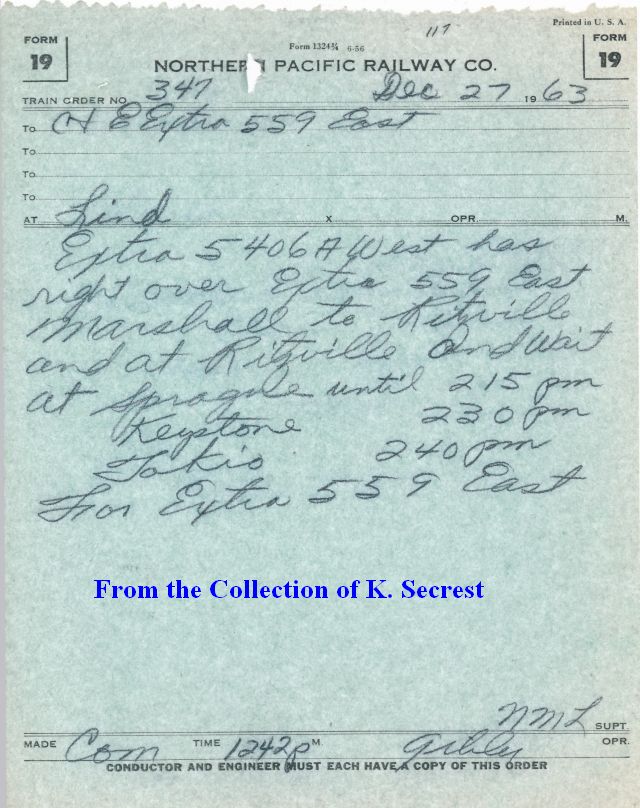 117
Printed in U. S. A.
FORM 19
Form 1324¾ 6-56
FORM 19
NORTHERN PACIFIC RAILWAY CO.
TRAIN ORDER NO. 347 Dec 27 1963
To C & E Extra 559 East
To
To
To
AT Lind X OPR. M.
Extra 5406A West has
right over Extra 559 East
Marshall to Ritzville
and at Ritzville and wait
at Sprague until 215 pm
Keystone 230 pm
Tokio 240 pm
For Extra 559 East
From the Collection of K. Secrest
NML SUPT.
MADE Com TIME 1242p M. OPR.
CONDUCTOR AND ENGINEER MUST EACH HAVE A COPY OF THIS ORDER